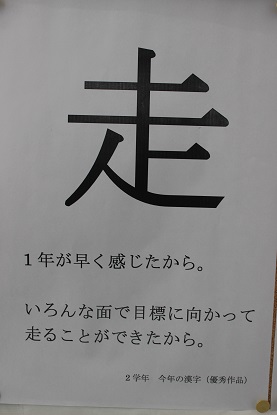 走
1年が早く感じたから。
いろんな面で目標に向かって
走ることができたから。
2学年 今年の漢字（優秀作品）